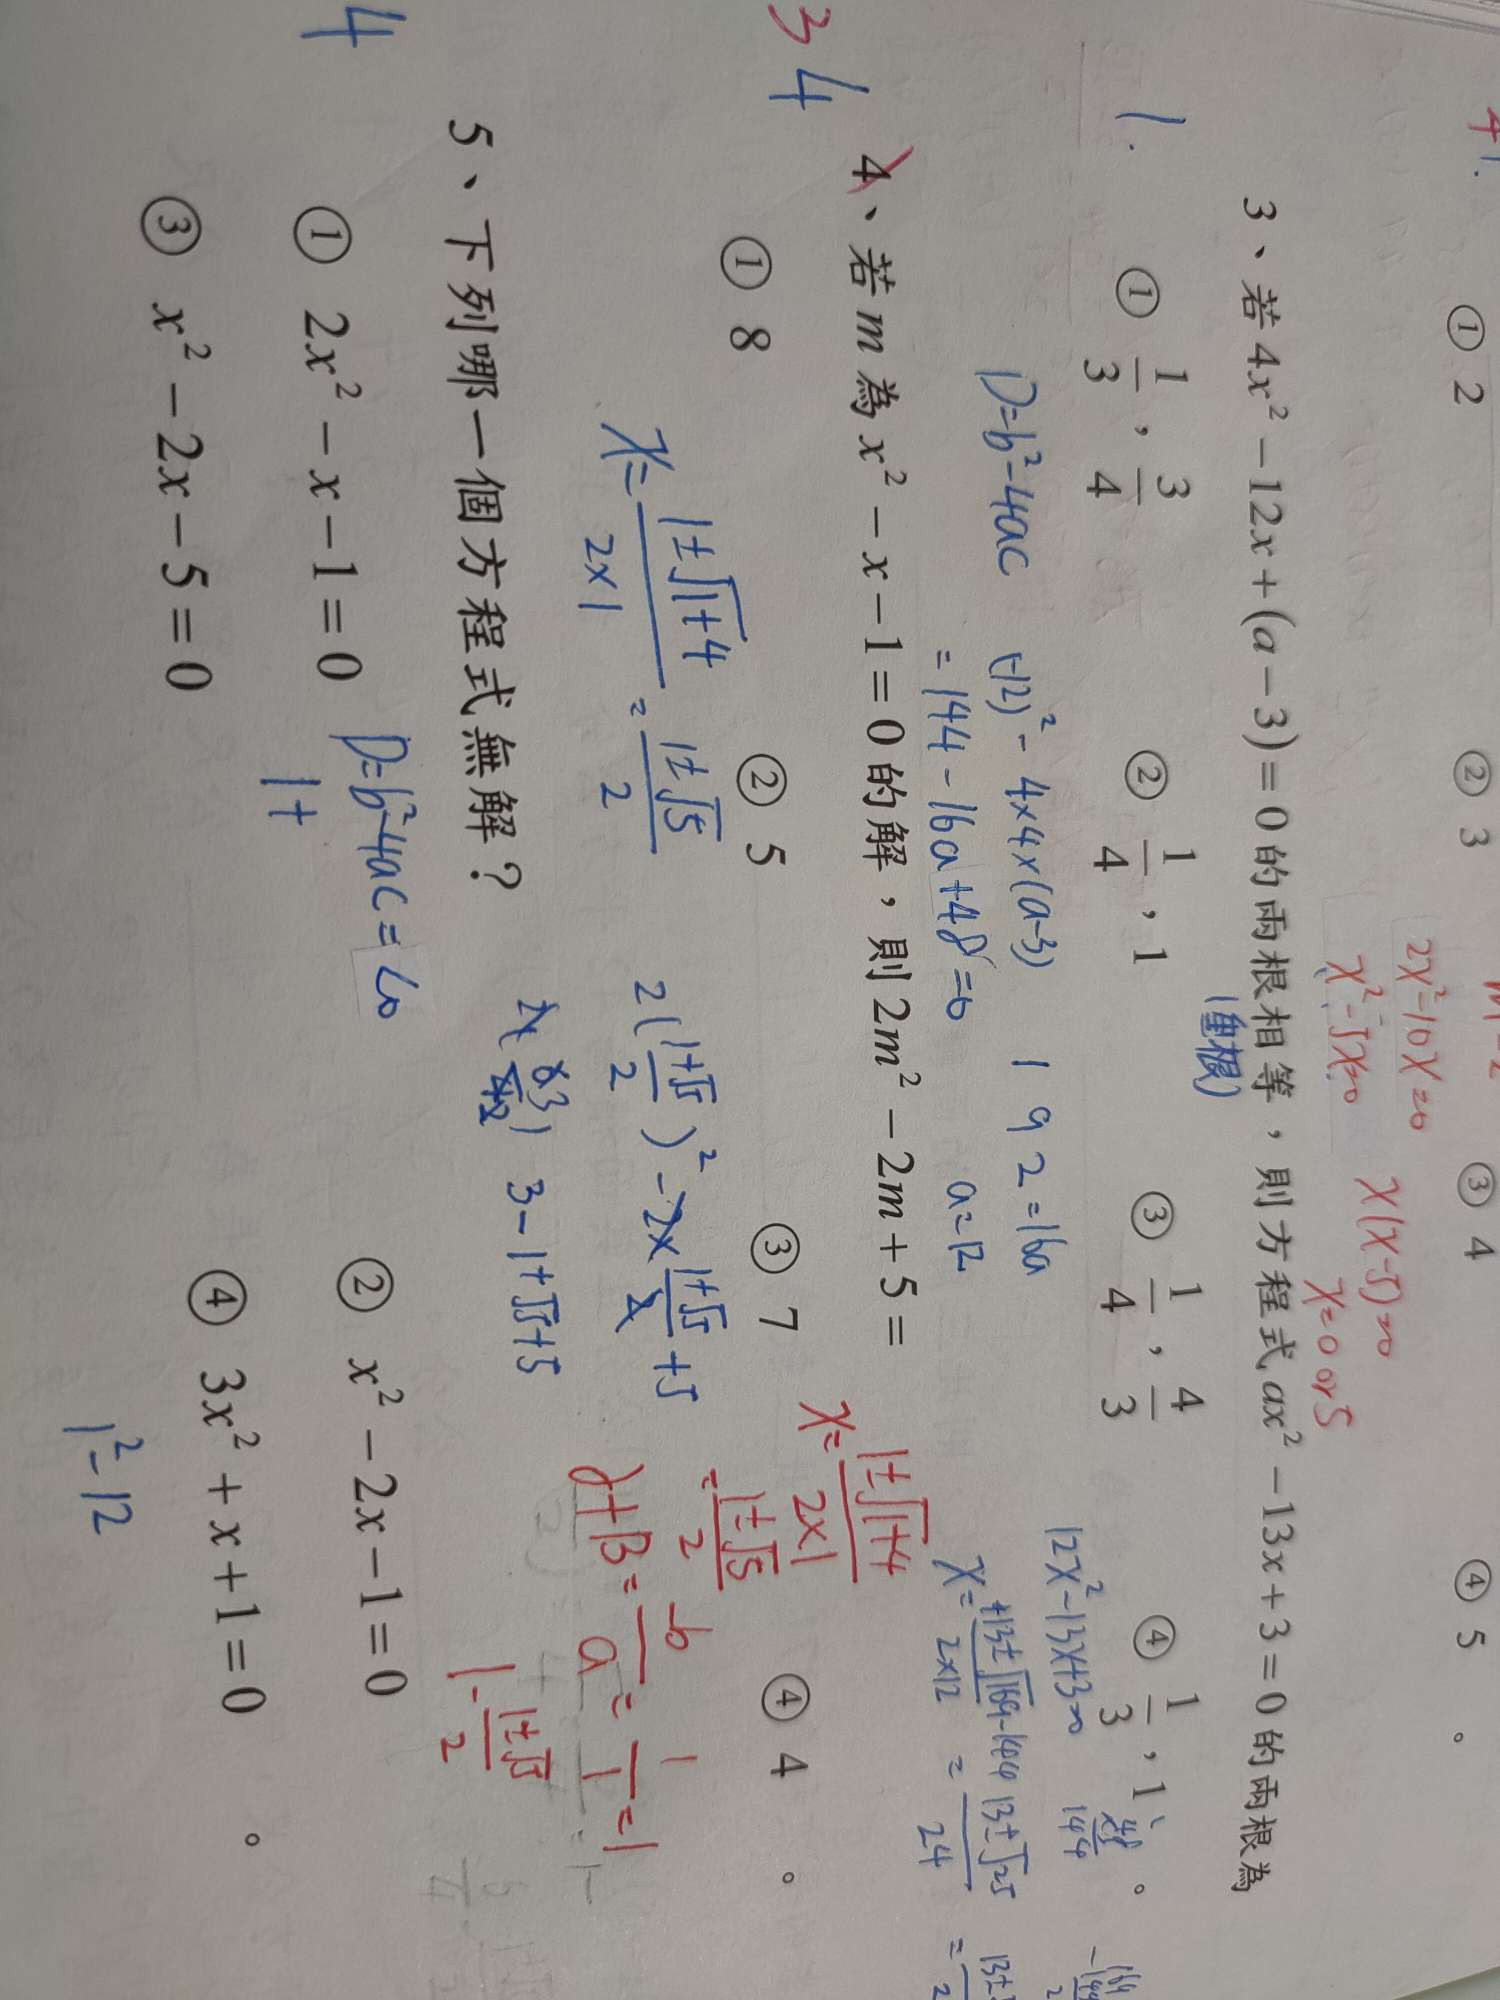 4 1.
① 2 ② 3 ③ 4 ④ 5 。
2x²-10x=0
x²-5x=0
x(x-5)=0
x=0 or 5
3、若 4x² - 12x + (a - 3) = 0 的兩根相等，則方程式 ax² - 13x + 3 = 0 的兩根為
(重根)
1.
① 1/3 , 3/4 ② 1/4 , 1 ③ 1/4 , 4/3 ④ 1/3 , 1 。
D=b²-4ac (-12)² - 4x4x(a-3) 192=16a
= 144 - 16a+48=0 a=12
12x²-13x+3=0
x= +13±√169-144 / 2x12 = 13±√25 / 24
3 4
4、若 m 為 x² - x - 1 = 0 的解，則 2m² - 2m + 5 =
① 8 ② 5 ③ 7 ④ 4 。
x= 1±√1+4 / 2x1 = 1±√5 / 2
2(1+√5 / 2)² - 2x 1+√5 / 2 +5
3-1+√5+5
x= 1±√1+4 / 2x1
= 1±√5 / 2
α+β= -b / a = 1 / 1 =1
1- 1±√5 / 2
4
5、下列哪一個方程式無解？
D=b²-4ac=<0
① 2x² - x - 1 = 0 ② x² - 2x - 1 = 0
1+
③ x² - 2x - 5 = 0 ④ 3x² + x + 1 = 0 。
1²-12